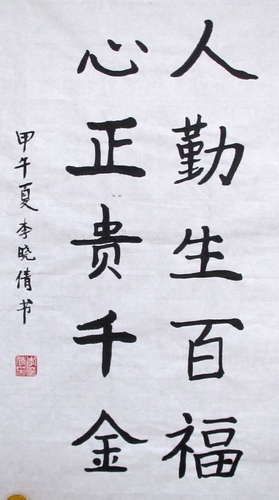 人勤生百福
心正贵千金
甲午夏李晓倩书